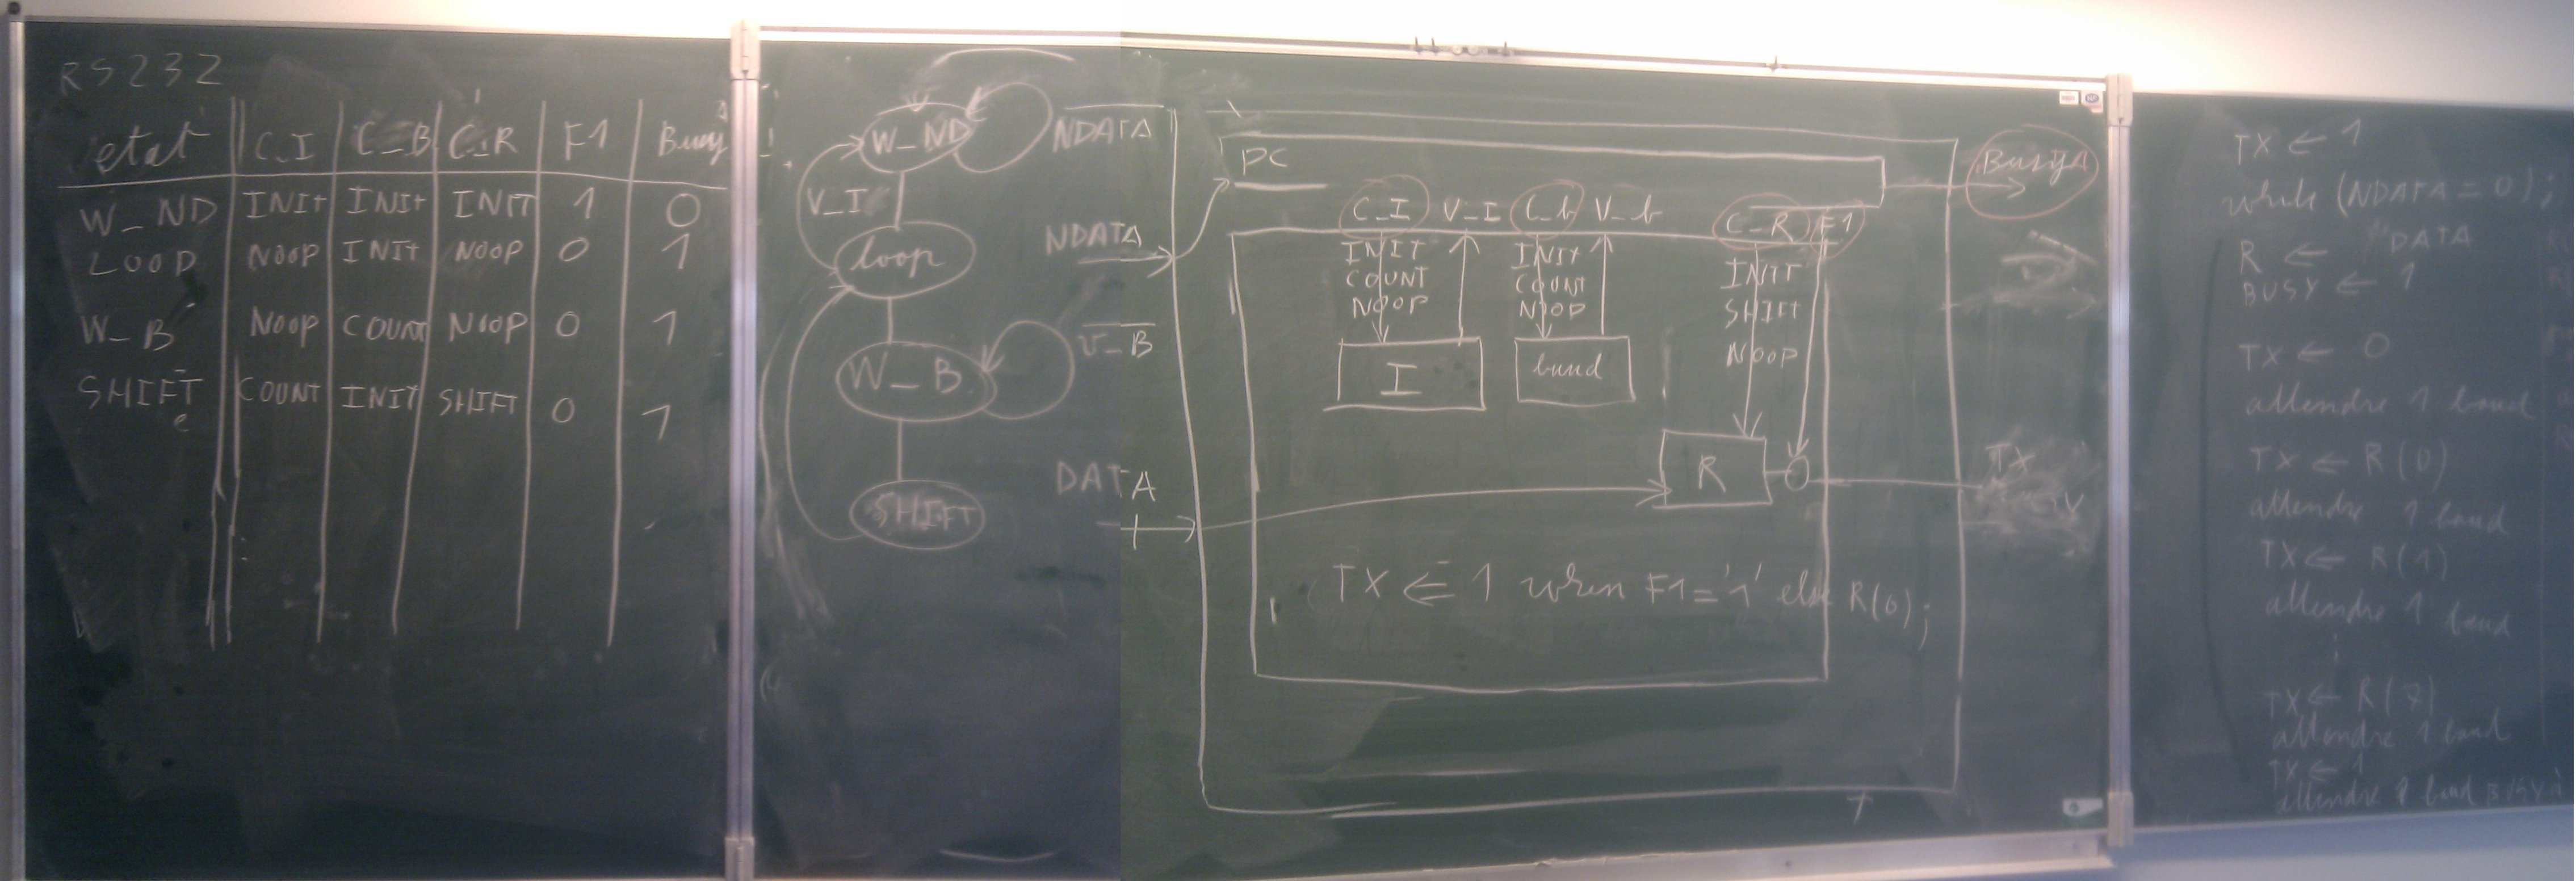 RS232
etat C_I C_B C_R F1 Busy
W_ND INIT INIT INIT 1 0
LOOP NOOP INIT NOOP 0 1
W_B NOOP COUNT NOOP 0 1
SHIFT COUNT INIT SHIFT 0 1
W_ND
NDATA
V_I
loop
V_B
W_B
SHIFT
PC
Busy
NDATA
C_I V_I C_b V_b C_R F1
INIT INIT INIT
COUNT COUNT SHIFT
NOOP NOOP NOOP
I baud
R
DATA
TX
TX <= 1 when F1='1' else R(0);
TX ← 1
while (NDATA = 0);
R ← DATA
BUSY ← 1
TX ← 0
attendre 1 baud
TX ← R(0)
attendre 1 baud
TX ← R(1)
attendre 1 baud
⋮
TX ← R(7)
attendre 1 baud
TX ← 1
attendre baud